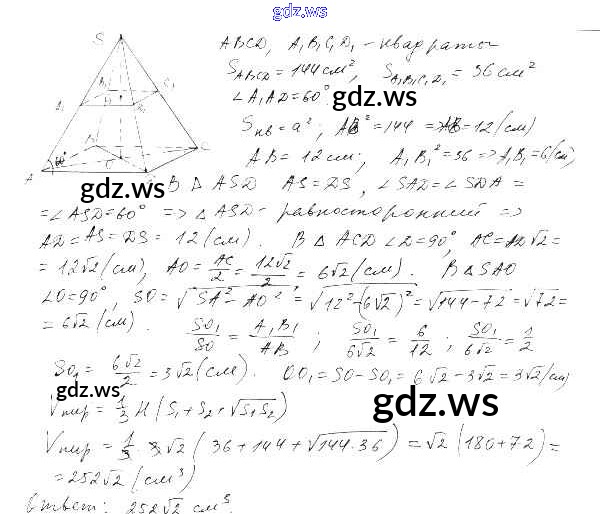 gdz.ws
ABCD, A₁B₁C₁D₁ - квадраты
S_ABCD = 144 см², S_A₁B₁C₁D₁ = 36 см²
∠A₁AD = 60°
gdz.ws
S_кв = a², AB² = 144 => AB = 12 (см)
AB = 12 см, A₁B₁² = 36 => A₁B₁ = 6 (см)
S
A₁ B₁ C₁ D₁
A B C D O
60°
gdz.ws
В Δ ASD AS = DS, ∠SAD = ∠SDA =
= ∠ASD = 60° => Δ ASD - равносторонний =>
AD = AS = DS = 12 (см). В Δ ACD ∠D = 90°, AC = AD√2 =
= 12√2 (см), AO = AC/2 = 12√2/2 = 6√2 (см). В Δ SAO
∠O = 90°, SO = √(SA² - AO²) = √(12² - (6√2)²) = √(144 - 72) = √72 =
= 6√2 (см). SO₁/SO = A₁B₁/AB ; SO₁/6√2 = 6/12 ; SO₁/6√2 = 1/2
SO₁ = 6√2/2 = 3√2 (см). OO₁ = SO - SO₁ = 6√2 - 3√2 = 3√2 (см)
gdz.ws
gdz.ws
V_пир = 1/3 H (S₁ + S₂ + √(S₁S₂))
V_пир = 1/3 3√2 (36 + 144 + √(144·36)) = √2 (180 + 72) =
= 252√2 (см³)
Ответ: 252√2 см³.